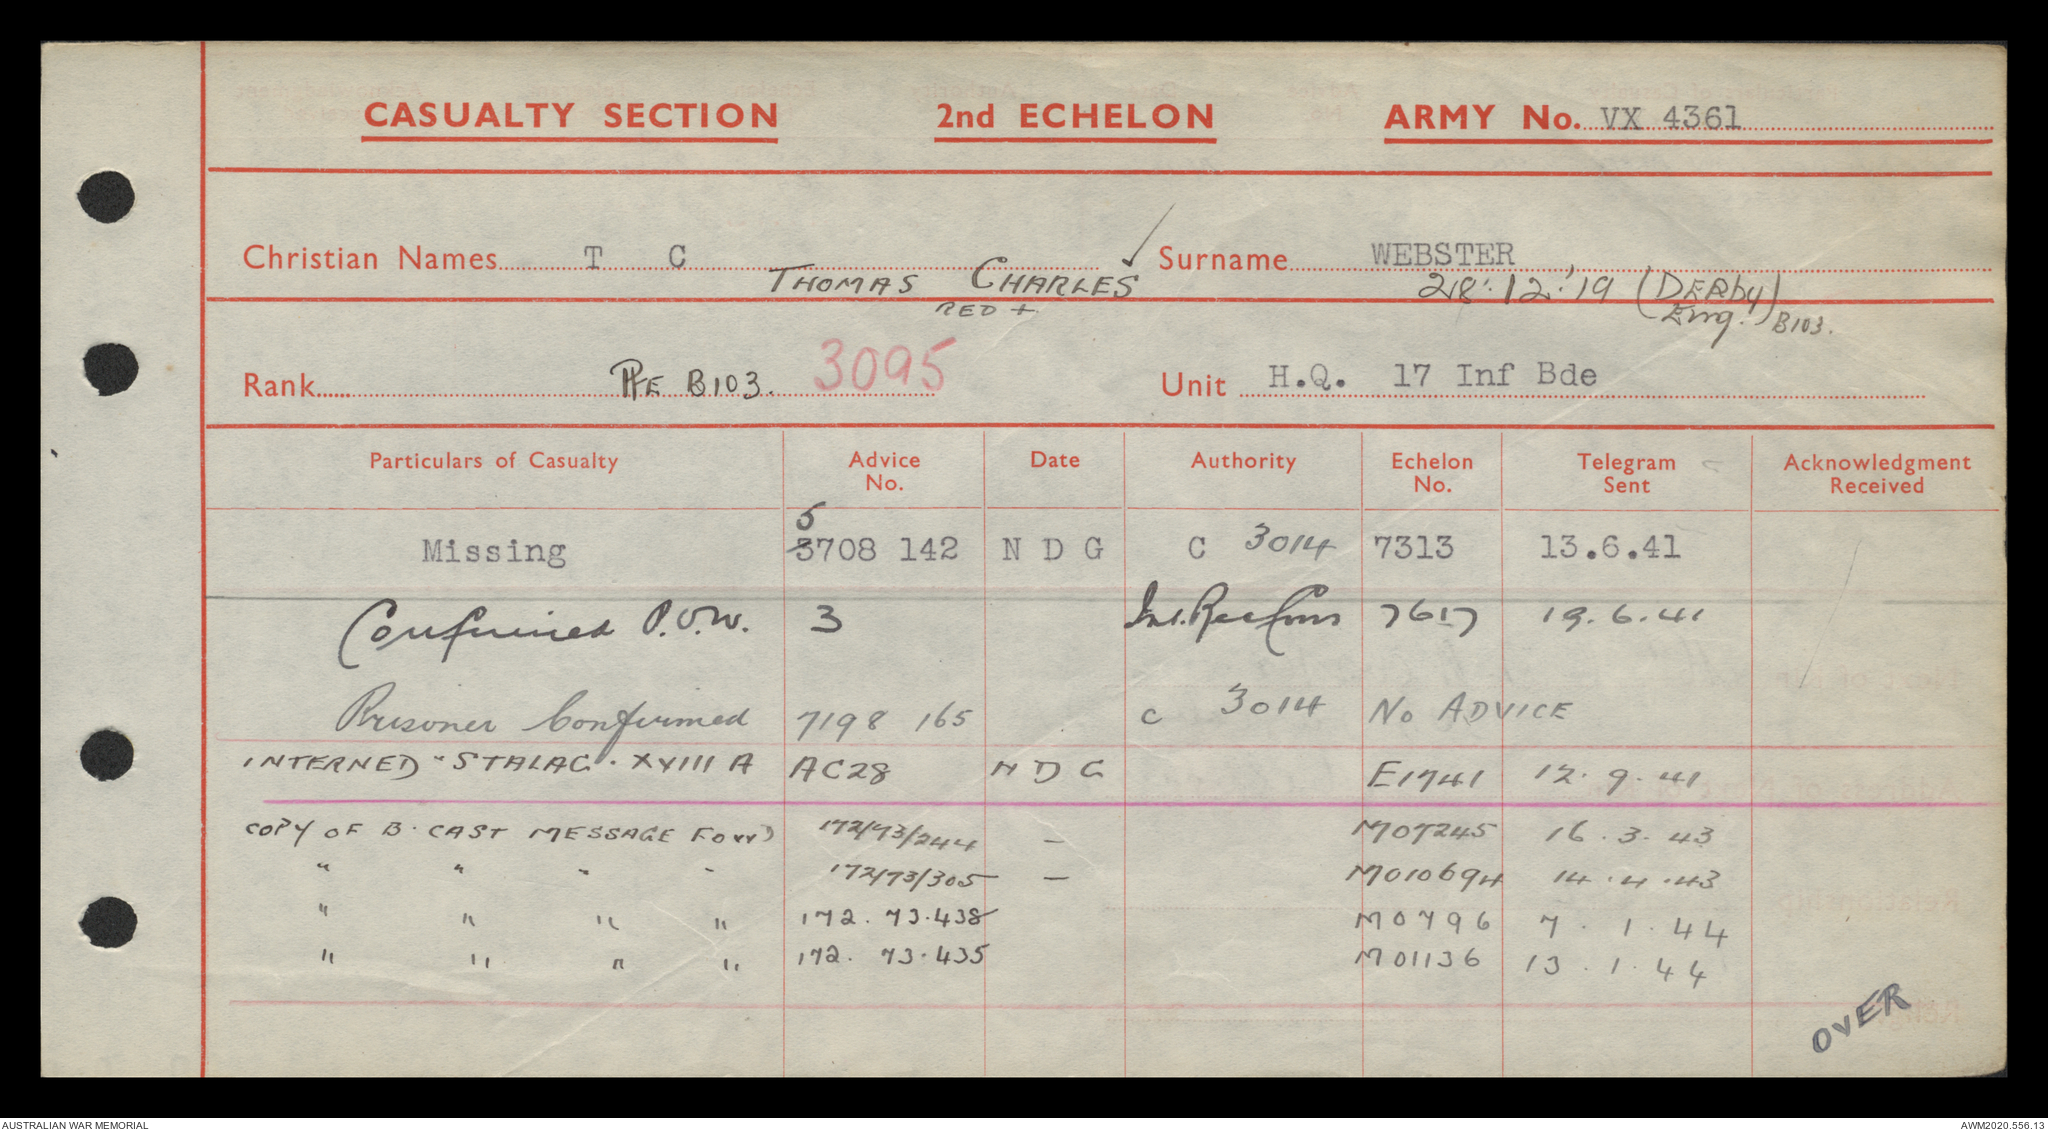 CASUALTY SECTION 2nd ECHELON ARMY No. VX 4361
Christian Names T C Surname WEBSTER
THOMAS CHARLES 28.12.'19 (DERby Eng.) B103.
RED +
Rank PTE B103. 3095 Unit H.Q. 17 Inf Bde
Particulars of Casualty Advice No. Date Authority Echelon No. Telegram Sent Acknowledgment Received
5
Missing 3708 142 N D G C 3014 7313 13.6.41
Confirmed P.O.W. 3 Int. Red Cross 7617 19.6.41
Prisoner Confirmed 7198 165 C 3014 No ADVICE
INTERNED "STALAG. XVIII A AC28 N D G E1741 12.9.41
COPY OF B.CAST MESSAGE FOWD 172/73/244 — M07245 16.3.43
" " " " 172/73/305 — M010694 14.4.43
" " " " 172.73.438 M0796 7.1.44
" " " " 172.73.435 M01136 13.1.44
OVER
AUSTRALIAN WAR MEMORIAL AWM2020.556.13